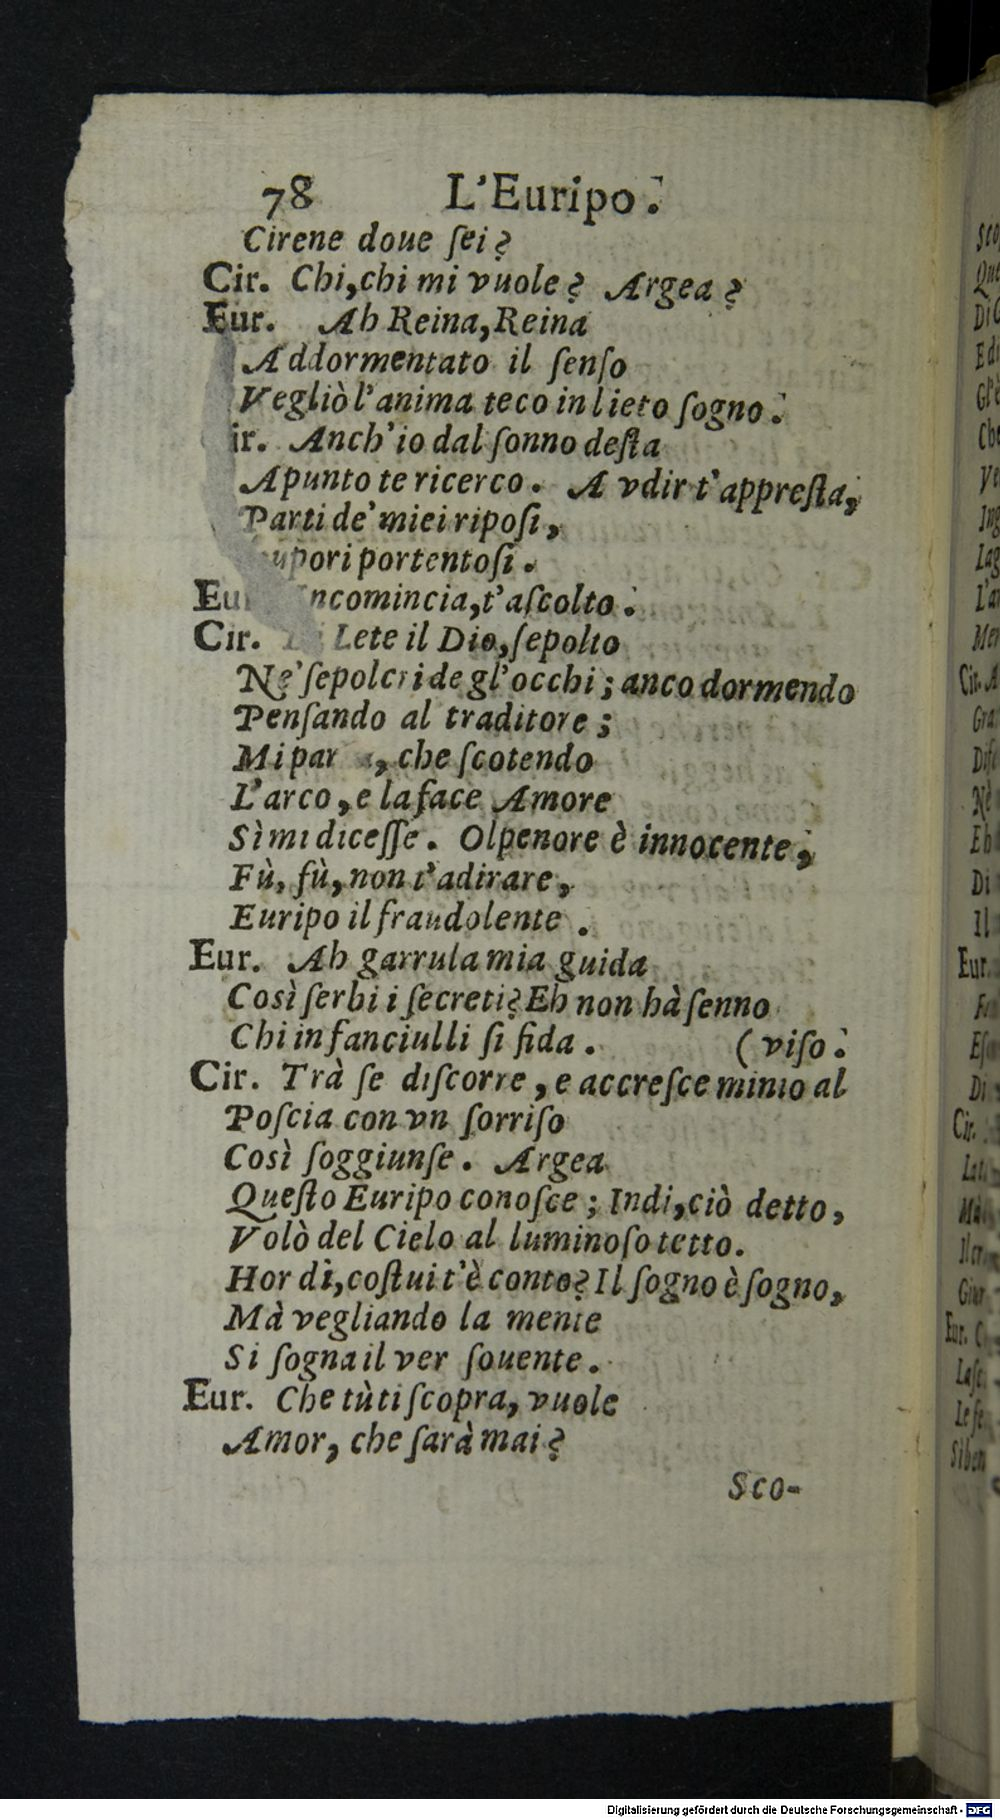 78 L'Euripo.
Cirene doue ſei?
Cir. Chi, chi mi vuole? Argea?
Eur. Ah Reina, Reina
Addormentato il ſenſo
Vegliò l'anima teco in lieto ſogno.
ir. Anch'io dal ſonno deſta
Apunto te ricerco. A vdir t'appreſta,
Parti de' miei ripoſi,
upori portentoſi.
Eu ncomincia, t'aſcolto.
Cir. Lete il Dio, ſepolto
Ne' ſepolcri de gl'occhi; anco dormendo
Penſando al traditore;
Mi par , che ſcotendo
L'arco, e la face Amore
Sì mi diceſſe. Olpenore è innocente,
Fù, fù, non t'adirare,
Euripo il fraudolente.
Eur. Ah garrula mia guida
Così ſerbi i ſecreti? Eh non hà ſenno
Chi in fanciulli ſi fida. (viſo.
Cir. Trà ſe diſcorre, e accreſce minio al
Poſcia con vn ſorriſo
Così ſoggiunſe. Argea
Queſto Euripo conoſce; Indi, ciò detto,
Volò del Cielo al luminoſo tetto.
Hor dì, coſtui t'è conto? Il ſogno è ſogno,
Mà vegliando la mente
Si ſogna il ver ſouente.
Eur. Che tù ti ſcopra, vuole
Amor, che ſarà mai?
Sco-
Digitalisierung gefördert durch die Deutsche Forschungsgemeinschaft - DFG